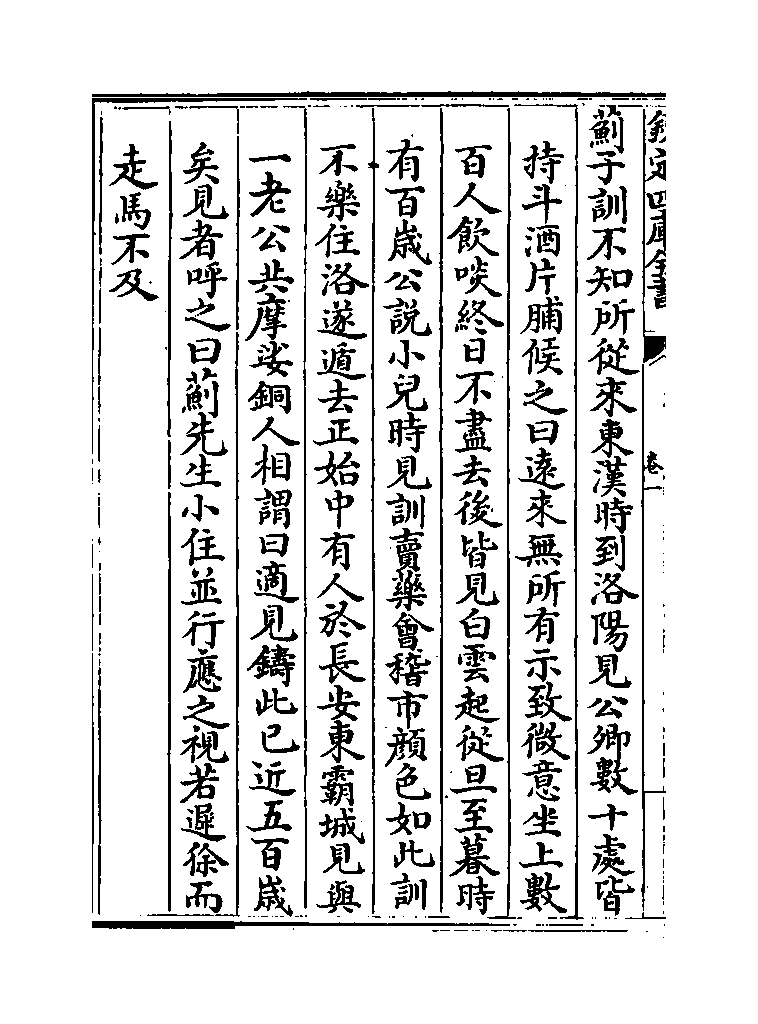 欽定四庫全書
卷一
薊子訓不知所從來東漢時到洛陽見公卿數十處皆
持斗酒片脯候之曰遠來無所有示致微意坐上數
百人飲啖終日不盡去後皆見白雲起從旦至暮時
有百歲公說小兒時見訓賣藥會稽市顔色如此訓
不樂住洛遂遁去正始中有人於長安東霸城見與
一老公共摩娑銅人相謂曰適見鑄此已近五百歲
矣見者呼之曰薊先生小住並行應之視若遲徐而
走馬不及